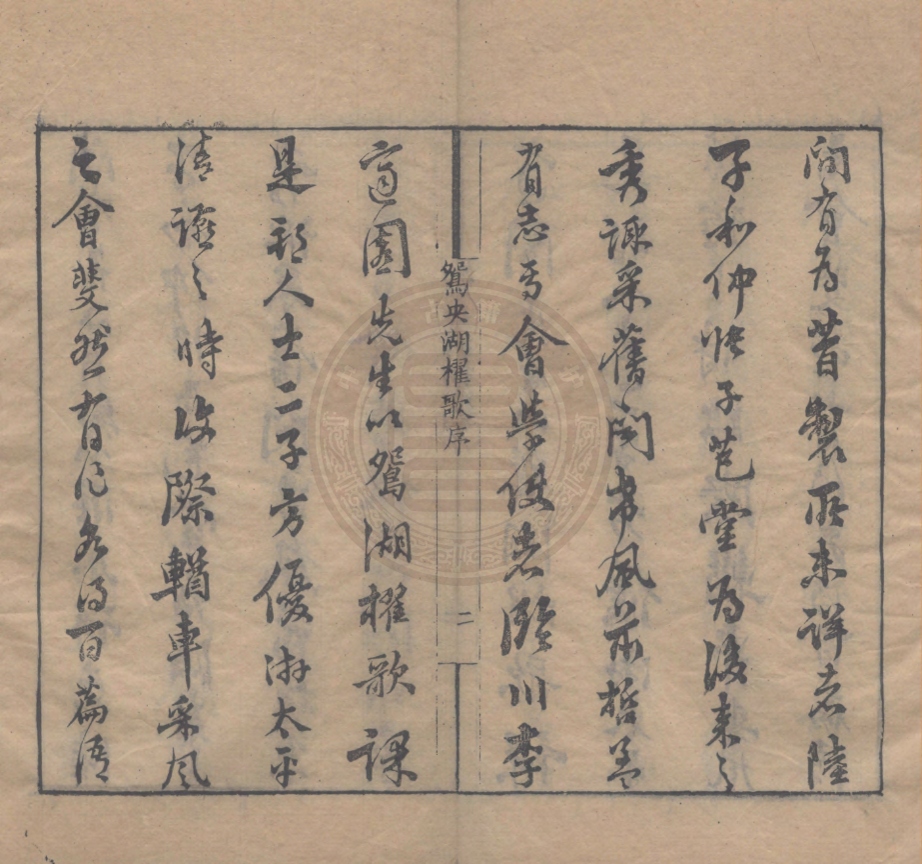 間有為昔製所未詳者陸
子和仲張子芑堂為後來之
秀諏采舊聞希風前哲蓋
有志焉會學使者臨川李
適園先生以鴛湖櫂歌課
是郡人士二子方優游太平
清謐之時復際輶車采風
之會斐然有作各得百篇語
鴛央湖櫂歌序
二